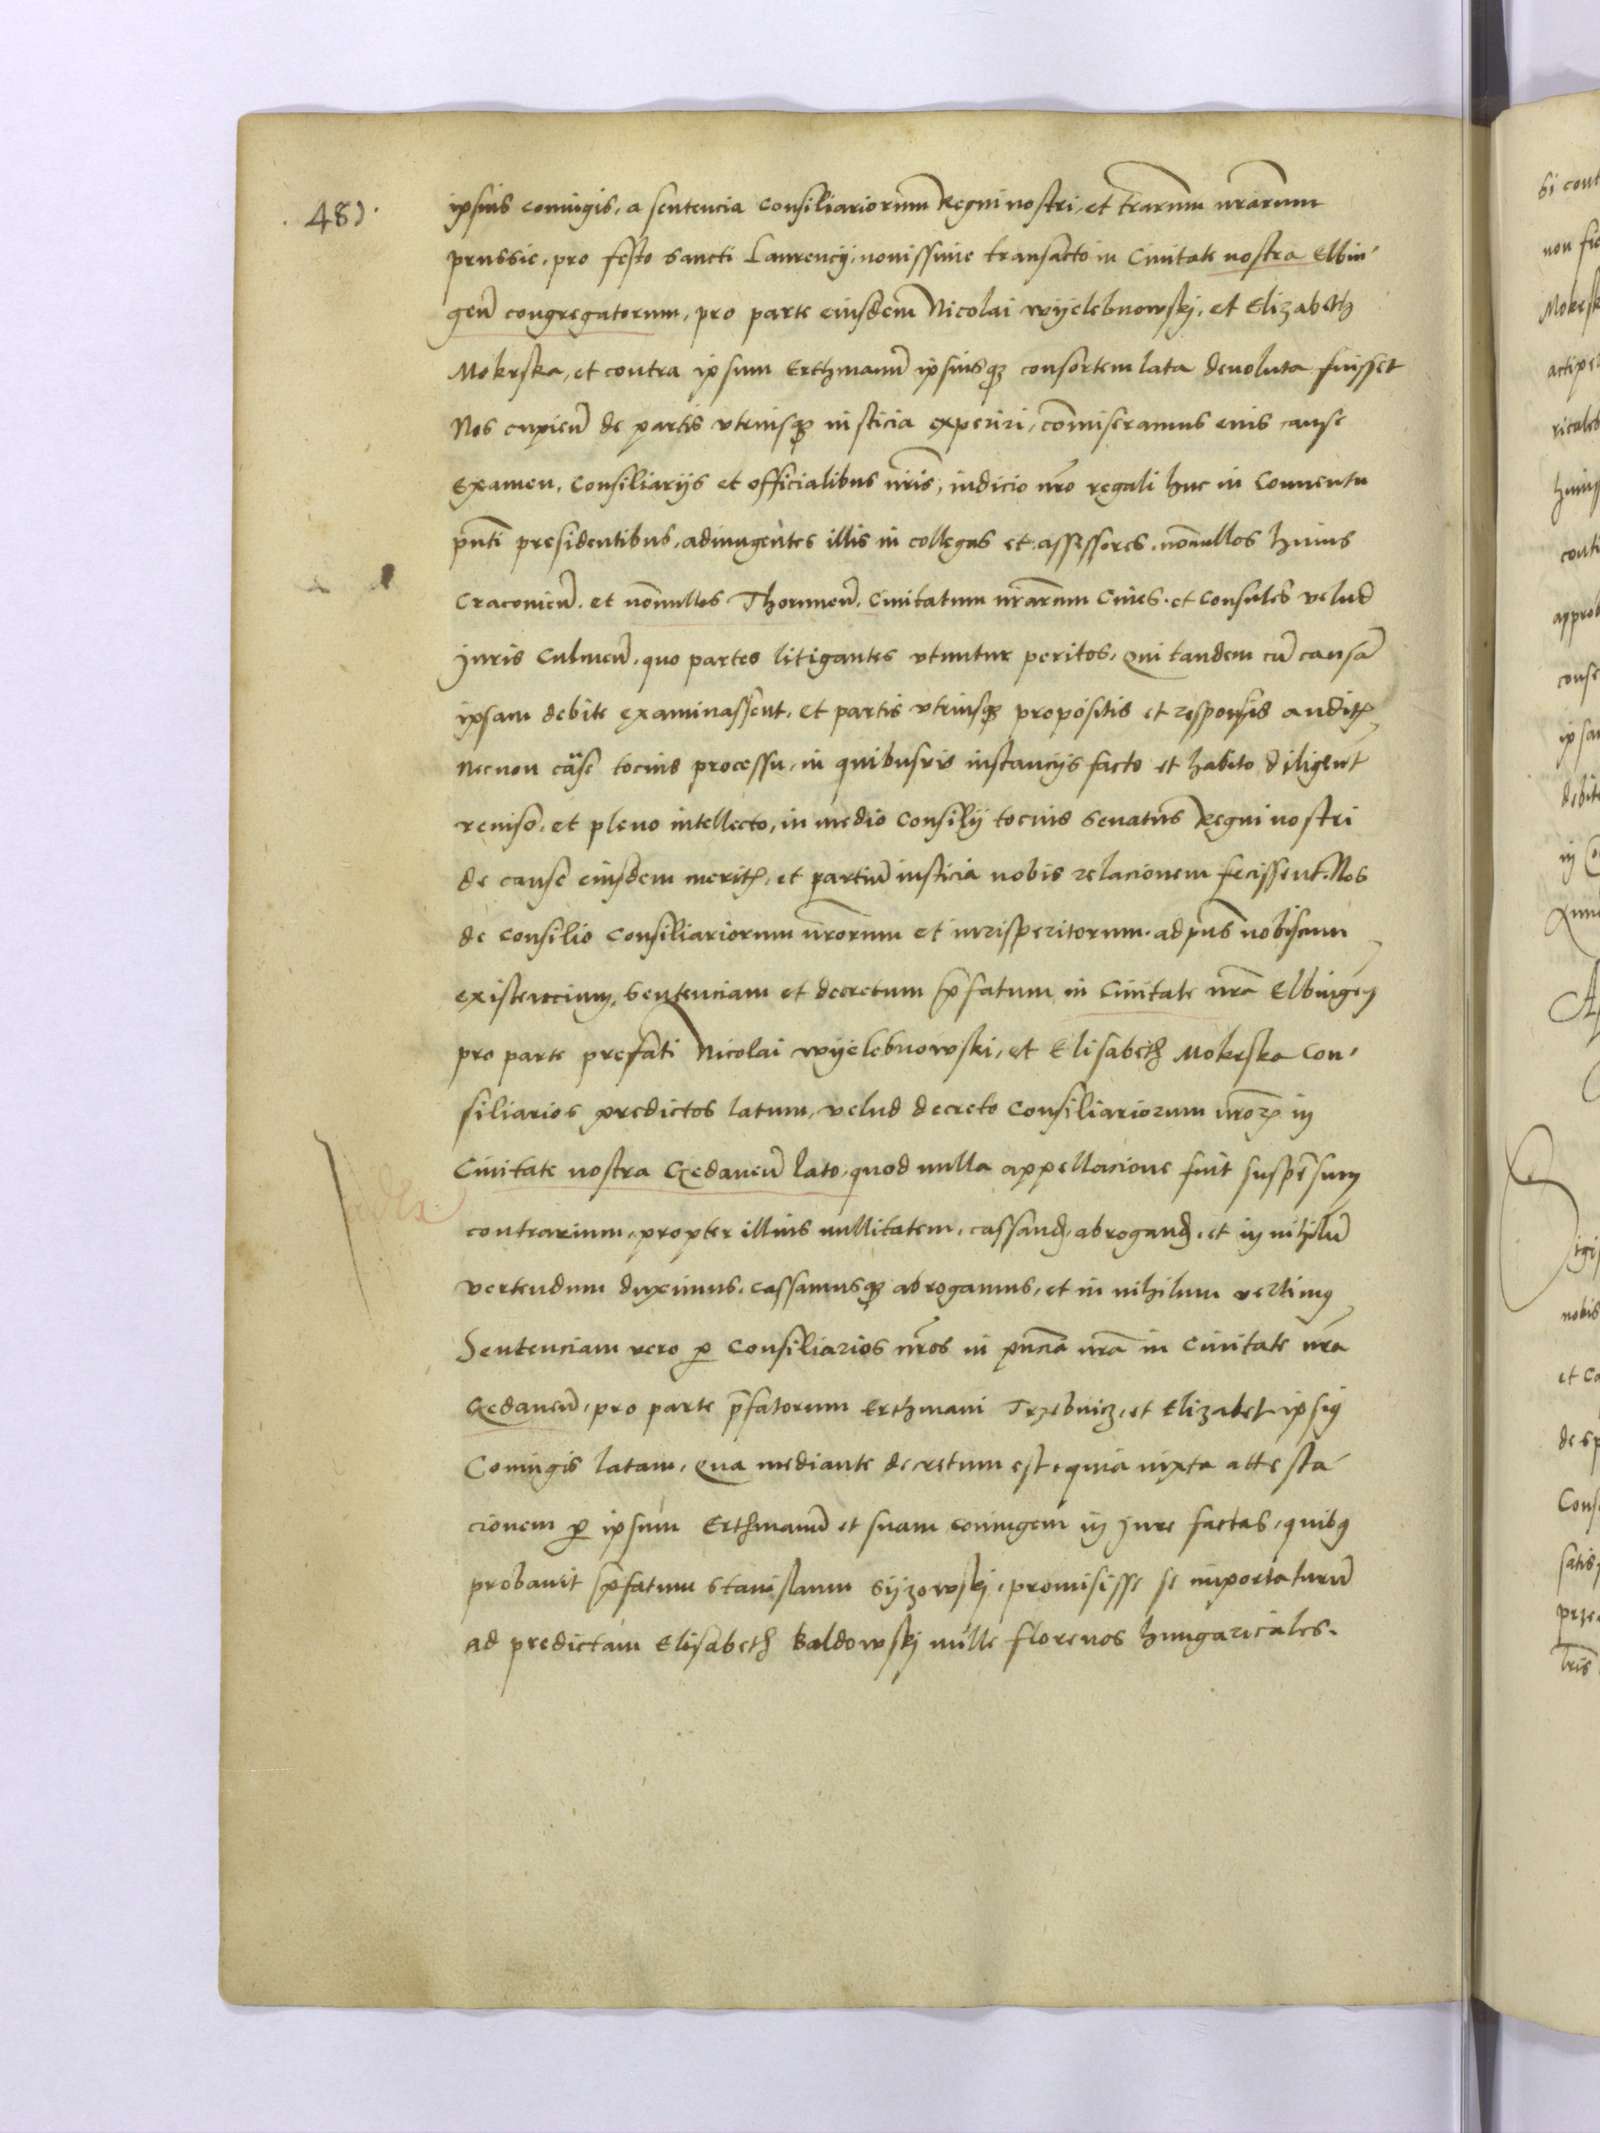 .481.
ipsius coniugis, a sentencia Consiliariorum Regni nostri, et trarum nrarum
prussie, pro festo Sancti Laurencij, nouissime transacto in Ciuitate nostra Elbin-
gen̄ congregatorum, pro parte eiusdem Nicolai wyelebnowskj, et Elizabeth
Mokrska, et contra ipsum Erthmanū ipsiusqȝ consortem lata deuoluta fuisset
Nos cupien̄ de partis vtriusqȝ iusticia experiri, com̄iseramus eius cause
Examen, Consiliarijs et officialibus nr̄is, iudicio nrō regali huc in Conuentu
pn̄ti presidentibus, adiungentes illis in collegas et assessores, nōnullos huius
Cracouien̄. et nōnullos Thorunen̄. Ciuitatum nrārum Ciues. et Consules velud
Juris Culmen̄. quo partes litigantes vtuntur peritos, Qui tandem cū causā
ipsam debite examinassent, et partis vtriusqȝ propositis et responsis auditꝭ
Necnon cāse tocius processu, in quibusuis instancijs facto et habito diligent̄
reuiso, et pleno intellecto, in medio Consilij tocius Senatus Regni nostri
de cause eiusdem meritꝭ, et partiū iusticia nobis relacionem fecissent. Nos
de Consilio Consiliariorum nrōrum et iurisperitorum. ad pn̄s nobiscum
existencium, Sentenciam et decretum p̄fatum in Ciuitate nrā Elbingen̄
pro parte prefati Nicolai wyelebnowski, et Elisabeth Mokrska Con-
siliarios predictos latum, velud decreto Consiliariorum nroꝝ in
Ciuitate nostra Gedanen̄ lato, quod nulla appellacione fuit suspēsum
contrarium, propter illius nullitatem, cassand̄, abrogand̄, et in nihilū
vertendum duximus, cassamusqȝ abrogamus, et in nihilum vertimꝰ
Sentenciam vero ꝑ Consiliarios nrōs in pn̄cia nrā in Ciuitate nrā
Gedanen̄, pro parte p̄fatorum Erthmani Trzebnicz, et Elizabet ipsiꝰ
Coniugis latam, Qua mediante decretum est, quia iuxta attesta-
cionem ꝑ ipsum Erthmanū et suam coniugem in Jure factas, quibꝰ
probauit p̄fatum Stanislaum Syzowskj, promisisse se importaturū
ad predictam Elisabeth Baldowskj mille florenos hungaricales.